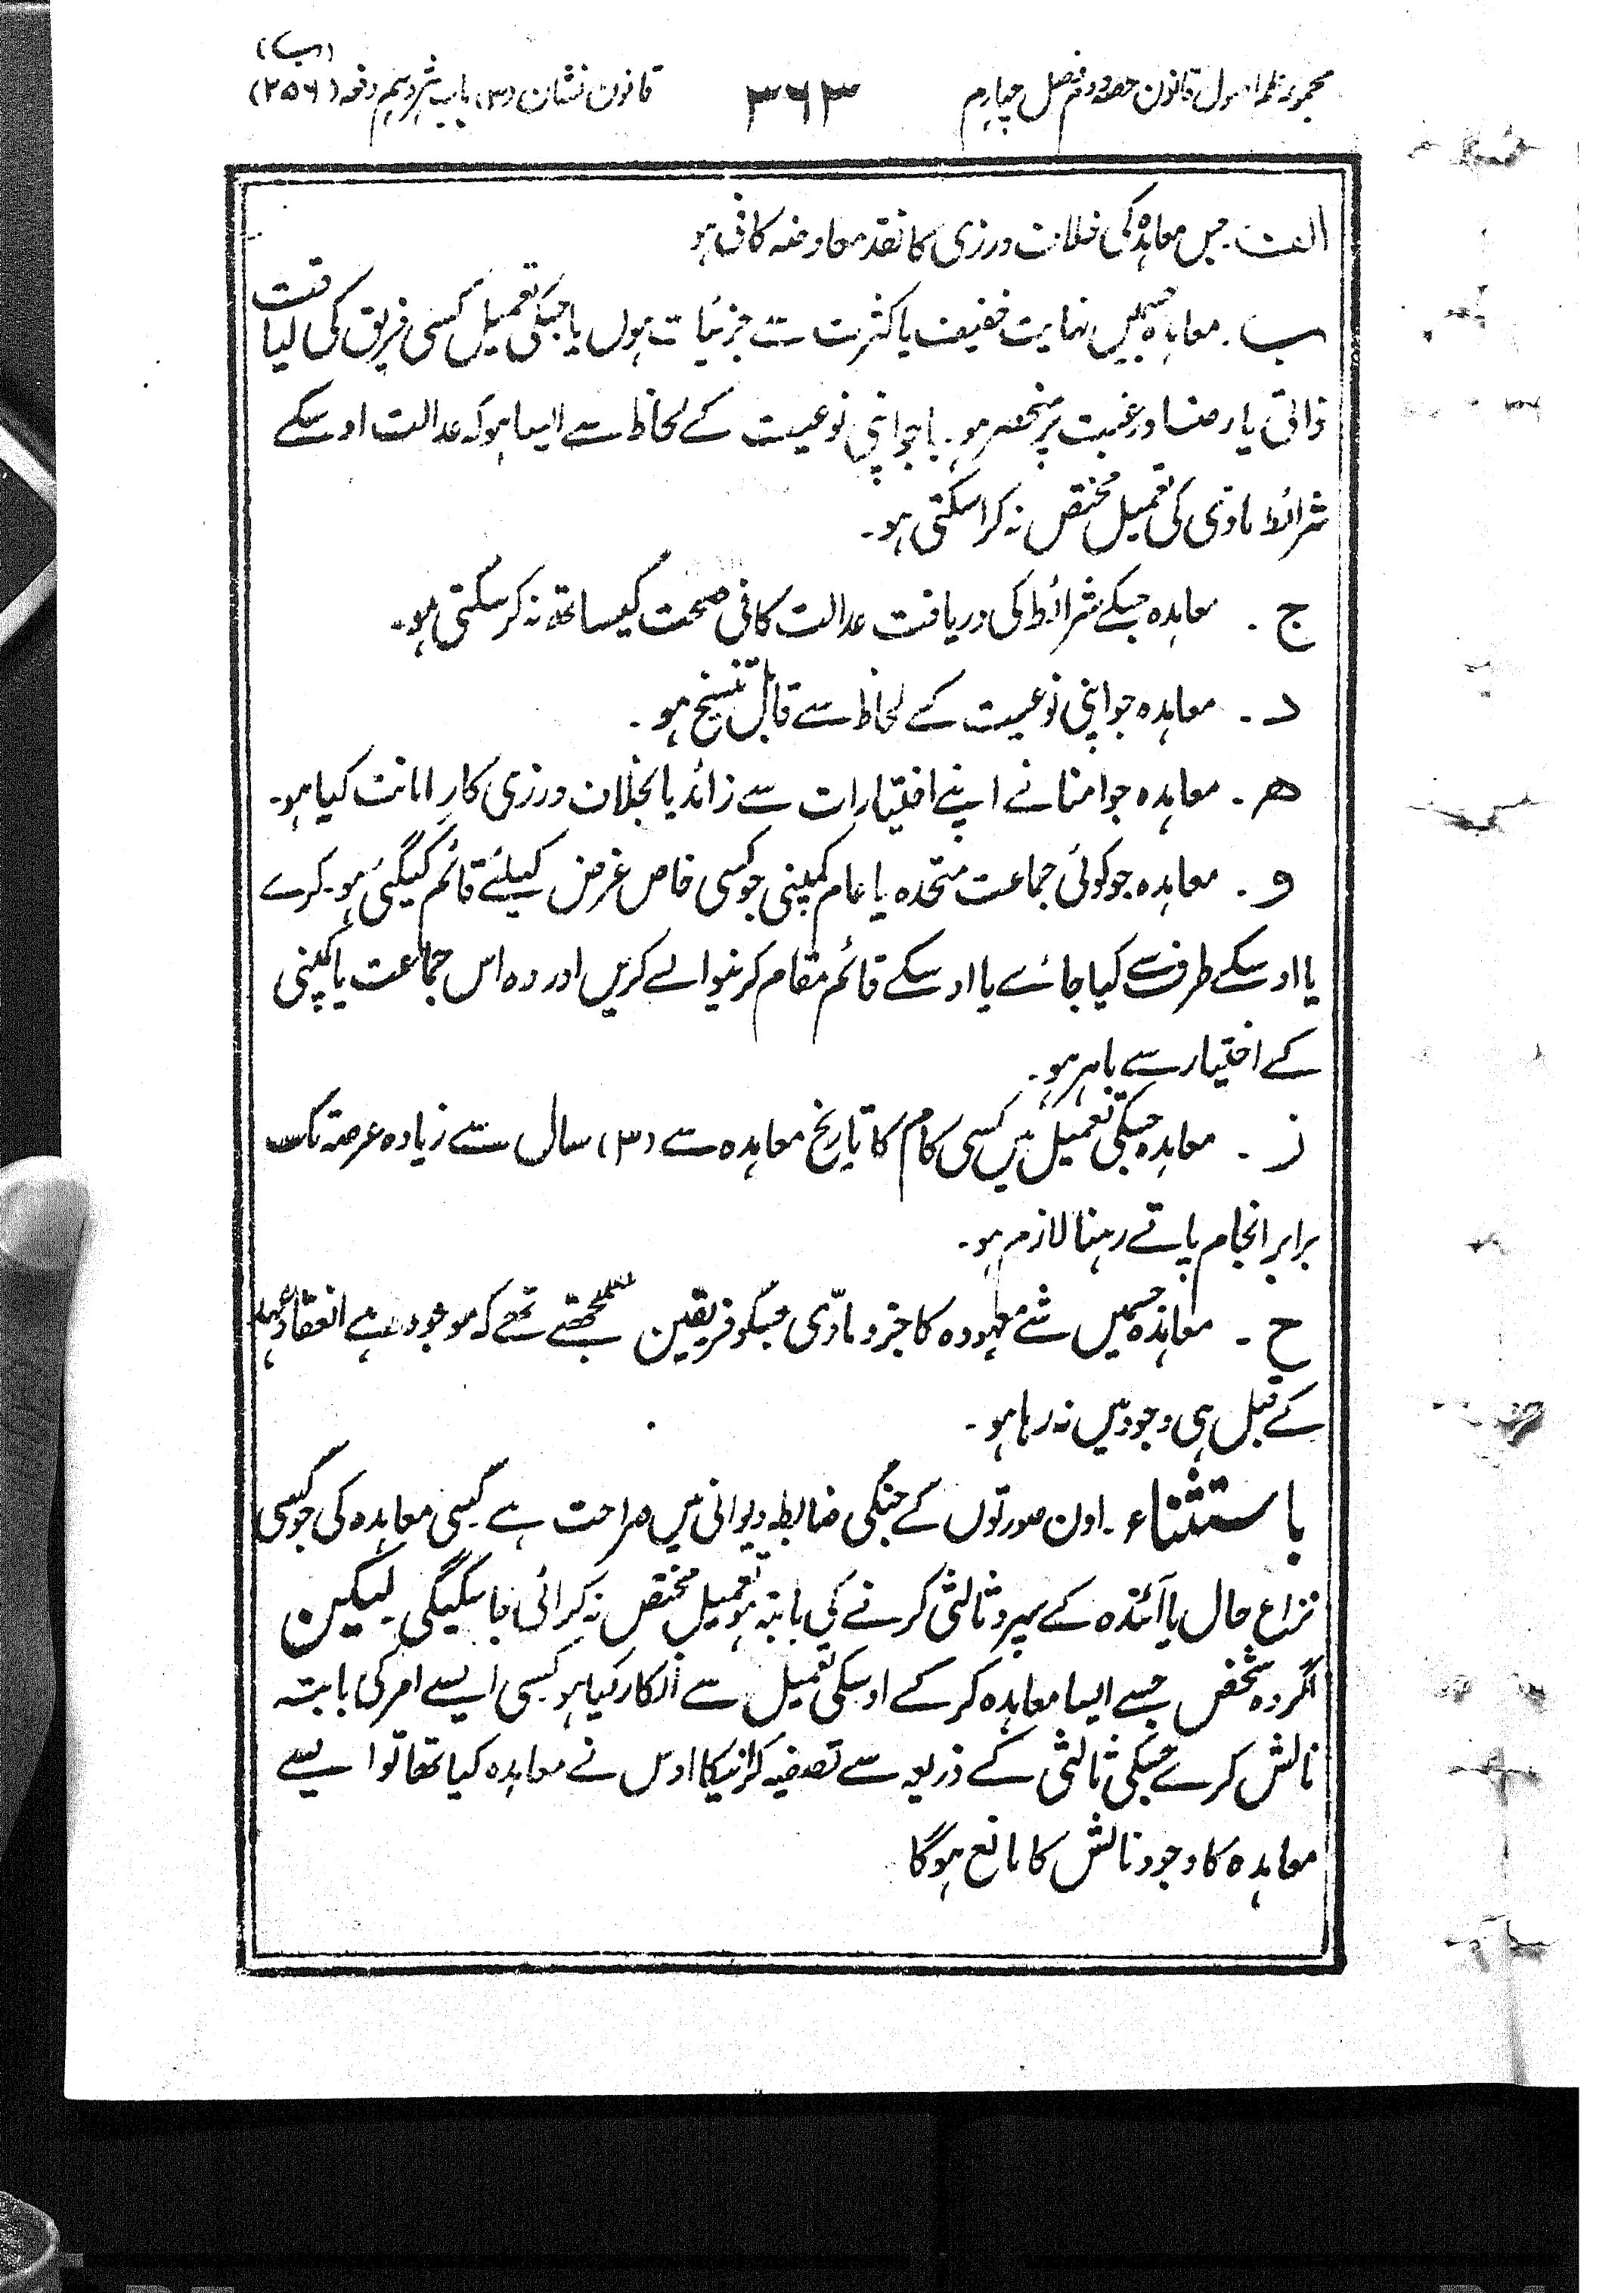 مجموعہ اصول قانون حصہ دوم فصل چہارم ۳۶۳ قانون نشان (۳) باب دہم دفعہ (۲۵۶) (ب)
الف۔ جس معاہدہ کی خلاف ورزی کا نقد معاوضہ کافی ہو
ب۔ معاہدہ جسمیں نہایت خفیف یا کثرت سے جزئیات ہوں یا جسکی تعمیل کسی فریق کی لیاقت
ذاتی یا رضا و رغبت پر منحصر ہو۔ یا جو اپنی نوعیت کے لحاظ سے ایسا ہو کہ عدالت اوسکے
شرائط مادّی کی تعمیل مختص نہ کراسکتی ہو۔
ج۔ معاہدہ جسکے شرائط کی دریافت عدالت کافی صحت کیساتھ نہ کرسکتی ہو۔
د۔ معاہدہ جو اپنی نوعیت کے لحاظ سے قابل تنسیخ ہو۔
ھ۔ معاہدہ جو امنا نے اپنے اختیارات سے زائد یا بخلاف ورزی کار امانت کیا ہو۔
و۔ معاہدہ جو کوئی جماعت متحدہ یا عام کمپنی جو کسی خاص غرض کیلئے قائم کیگئی ہو۔ کرے
یا اوسکے طرف سے کیا جائے یا اوسکے قائم مقام کرنیوالے کریں اور وہ اس جماعت یا کمپنی
کے اختیار سے باہر ہو۔
ز۔ معاہدہ جسکی تعمیل میں کسی کام کا تاریخ معاہدہ سے (۳) سال سے زیادہ عرصہ تک
برابر انجام پاتے رہنا لازم ہو۔
ح۔ معاہدہ جسمیں شے معہودہ کا جزو مادّی جسکو فریقین سمجھتے تھے کہ موجود ہے انعقاد معاہدہ
کے قبل ہی وجود میں نہ رہا ہو۔
باستثناء۔ اون صورتوں کے جنکی ضابطہ دیوانی میں صراحت ہے کسی معاہدہ کی جو کسی
نزاع حال یا آئندہ کے سپرد ثالثی کرنے کی بابتہ ہو تعمیل مختص نہ کرائی جاسکیگی لیکین
اگر وہ شخص جسے ایسا معاہدہ کرکے اوسکی تعمیل سے انکار کیا ہو کسی ایسے امر کی بابتہ
نالش کرے جسکی ثالثی کے ذریعہ سے تصفیہ کرانیکا اوس نے معاہدہ کیا تھا تو ایسے
معاہدہ کا وجود نالش کا مانع ہوگا